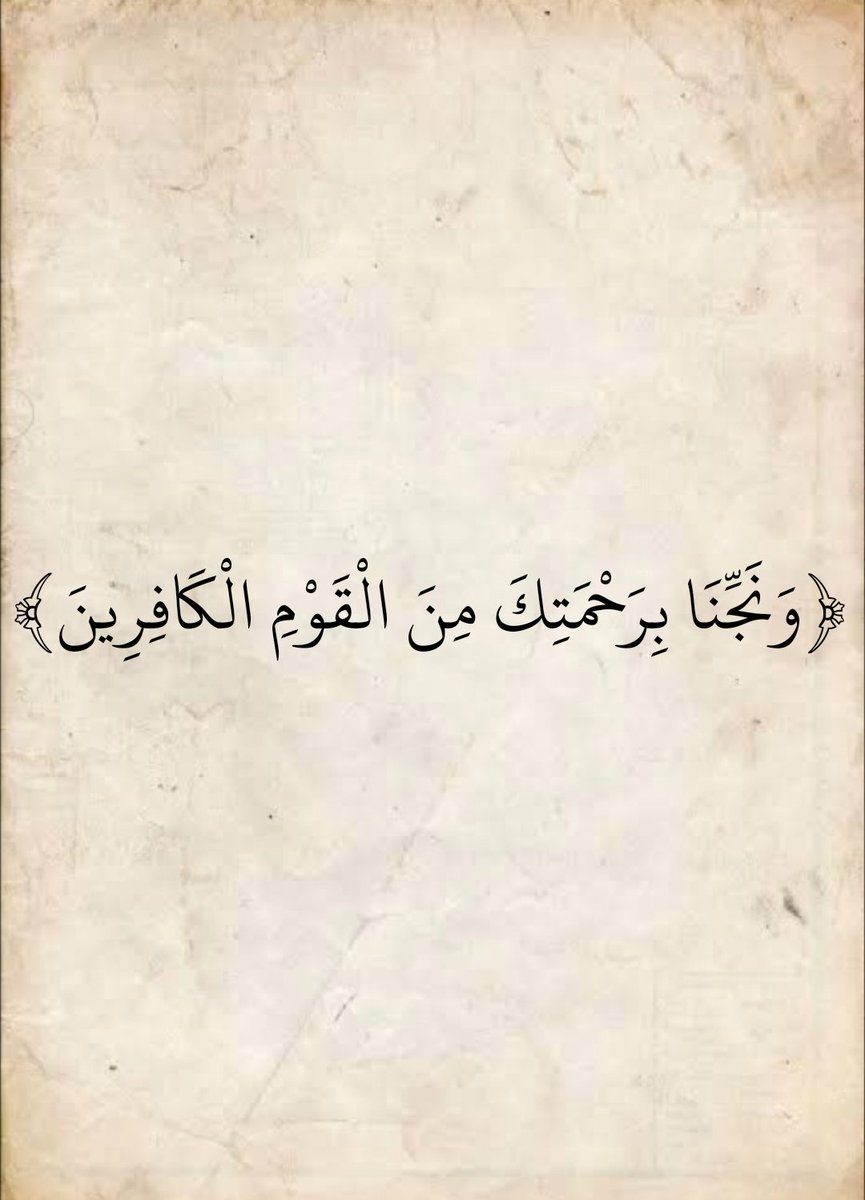 ﴿وَنَجِّنَا بِرَحْمَتِكَ مِنَ الْقَوْمِ الْكَافِرِينَ﴾